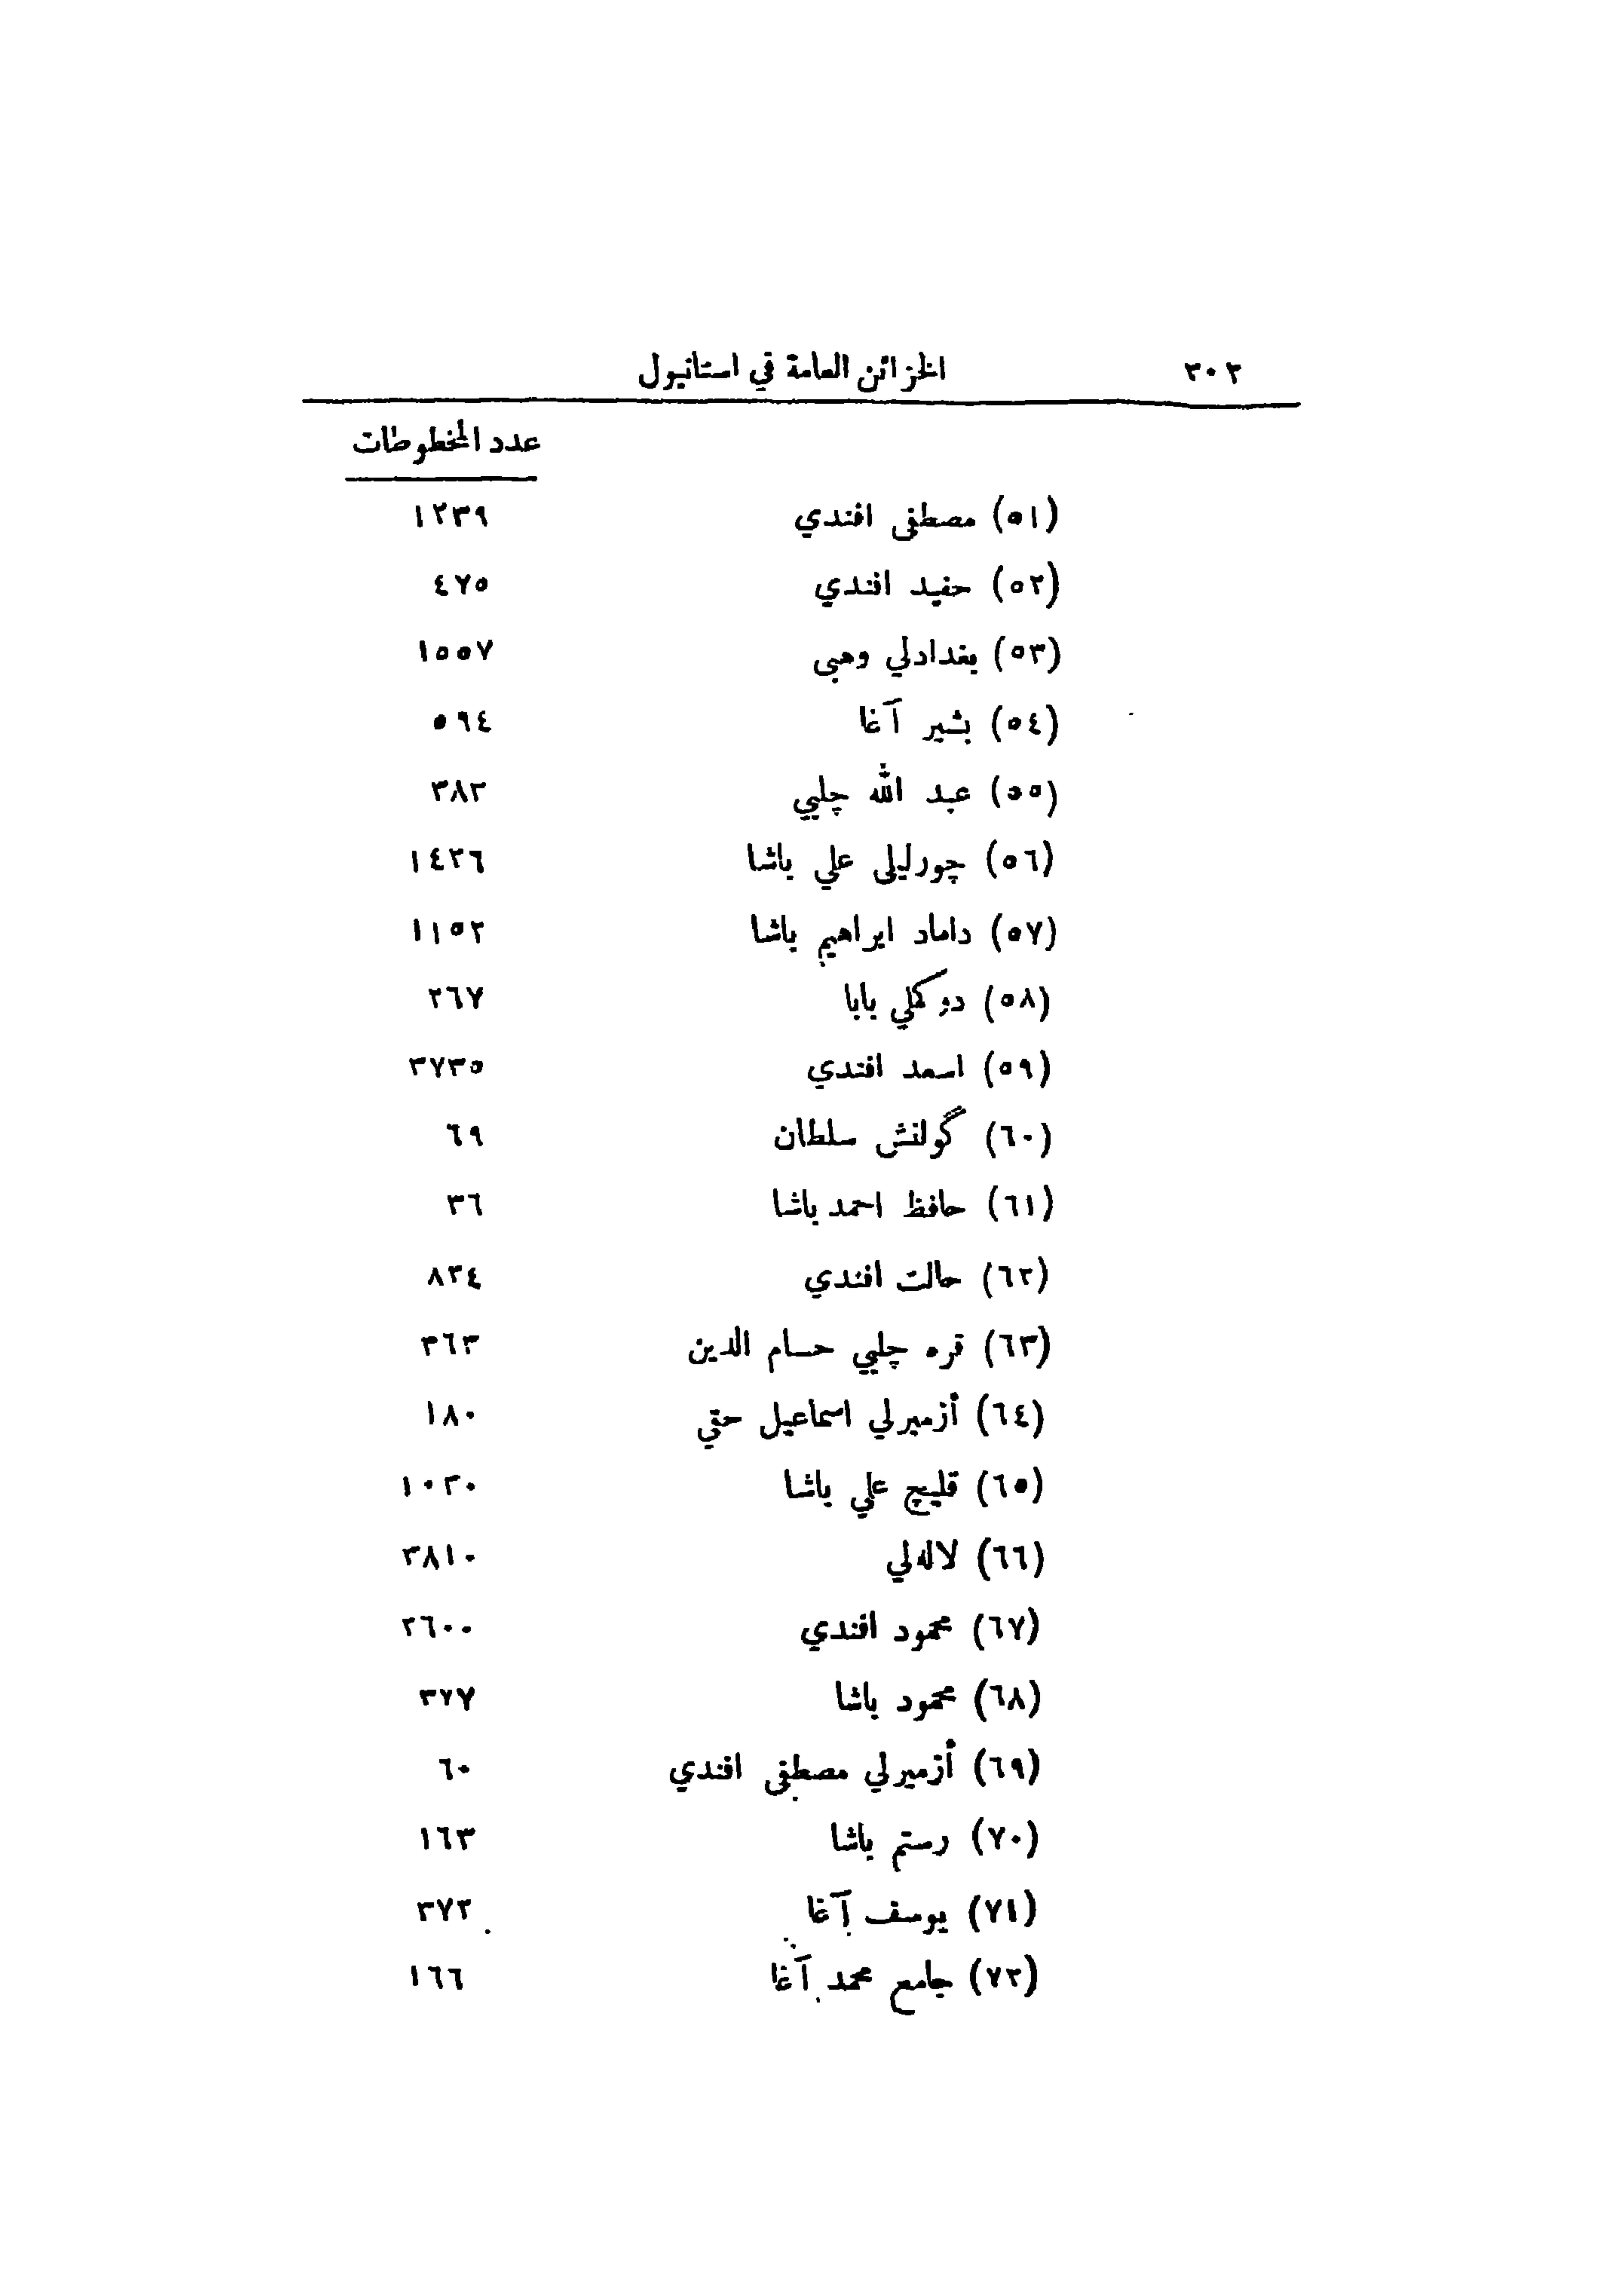 ٣٠٢ الخزائن العامة في استانبول
عدد المخطوطات
(٥١) مصطفى افندي ١٢٣٩
(٥٢) حفيد افندي ٤٧٥
(٥٣) بغدادلي وهبى ١٥٥٧
(٥٤) بشير آغا ٥٩٤
(٥٥) عبد الله چلبي ٣٨٢
(٥٦) چورليلى علي باشا ١٤٢٦
(٥٧) داماد ابراهيم باشا ١١٥٢
(٥٨) دوكملي بابا ٢٦٧
(٥٩) اسعد افندي ٣٧٣٥
(٦٠) گولنش سلطان ٦٩
(٦١) حافظ احمد باشا ٣٦
(٦٢) حالت افندي ٨٣٤
(٦٣) قره چلبي حسام الدين ٣٦٣
(٦٤) أزميرلي اسماعيل حقي ١٨٠
(٦٥) قليچ علي باشا ١٠٢٠
(٦٦) لاله‌لي ٣٨١٠
(٦٧) محمود افندي ٢٦٠٠
(٦٨) محمود باشا ٣٧٧
(٦٩) أزميرلي مصطفى افندي ٦٠
(٧٠) رستم باشا ١٦٣
(٧١) يوسف آغا ٣٧٢
(٧٢) جامع محمد آغا ١٦٦